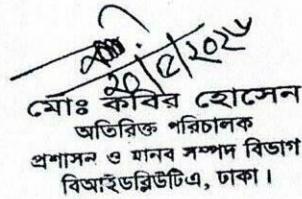 ২০/৫/২০২৫
মোঃ কবির হোসেন
অতিরিক্ত পরিচালক
প্রশাসন ও মানব সম্পদ বিভাগ
বিআইডব্লিউটিএ, ঢাকা।